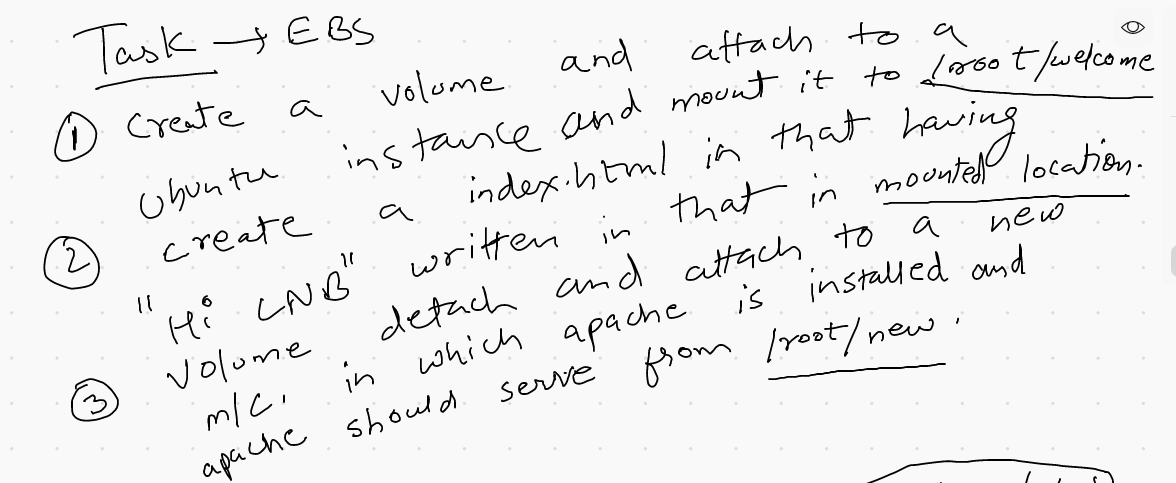 Task → EBS
① Create a volume and attach to a
Ubuntu instance and mount it to /root/welcome
② create a index.html in that having
"Hi LNB" written in that in mounted location.
③ Volume detach and attach to a new
m/c. in which apache is installed and
apache should serve from /root/new.